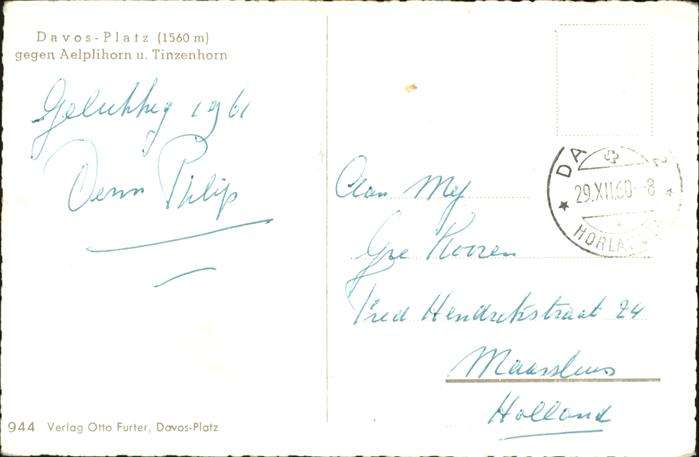 Davos-Platz (1560 m)
gegen Aelplihorn u. Tinzenhorn
Gelukkig 1961
Philip
Aan Mej
Gre Kooren
Fred Hendrikstraat 24
Maassluis
Holland
DA
29.XII.60-8
HORLA
944 Verlag Otto Furter, Davos-Platz